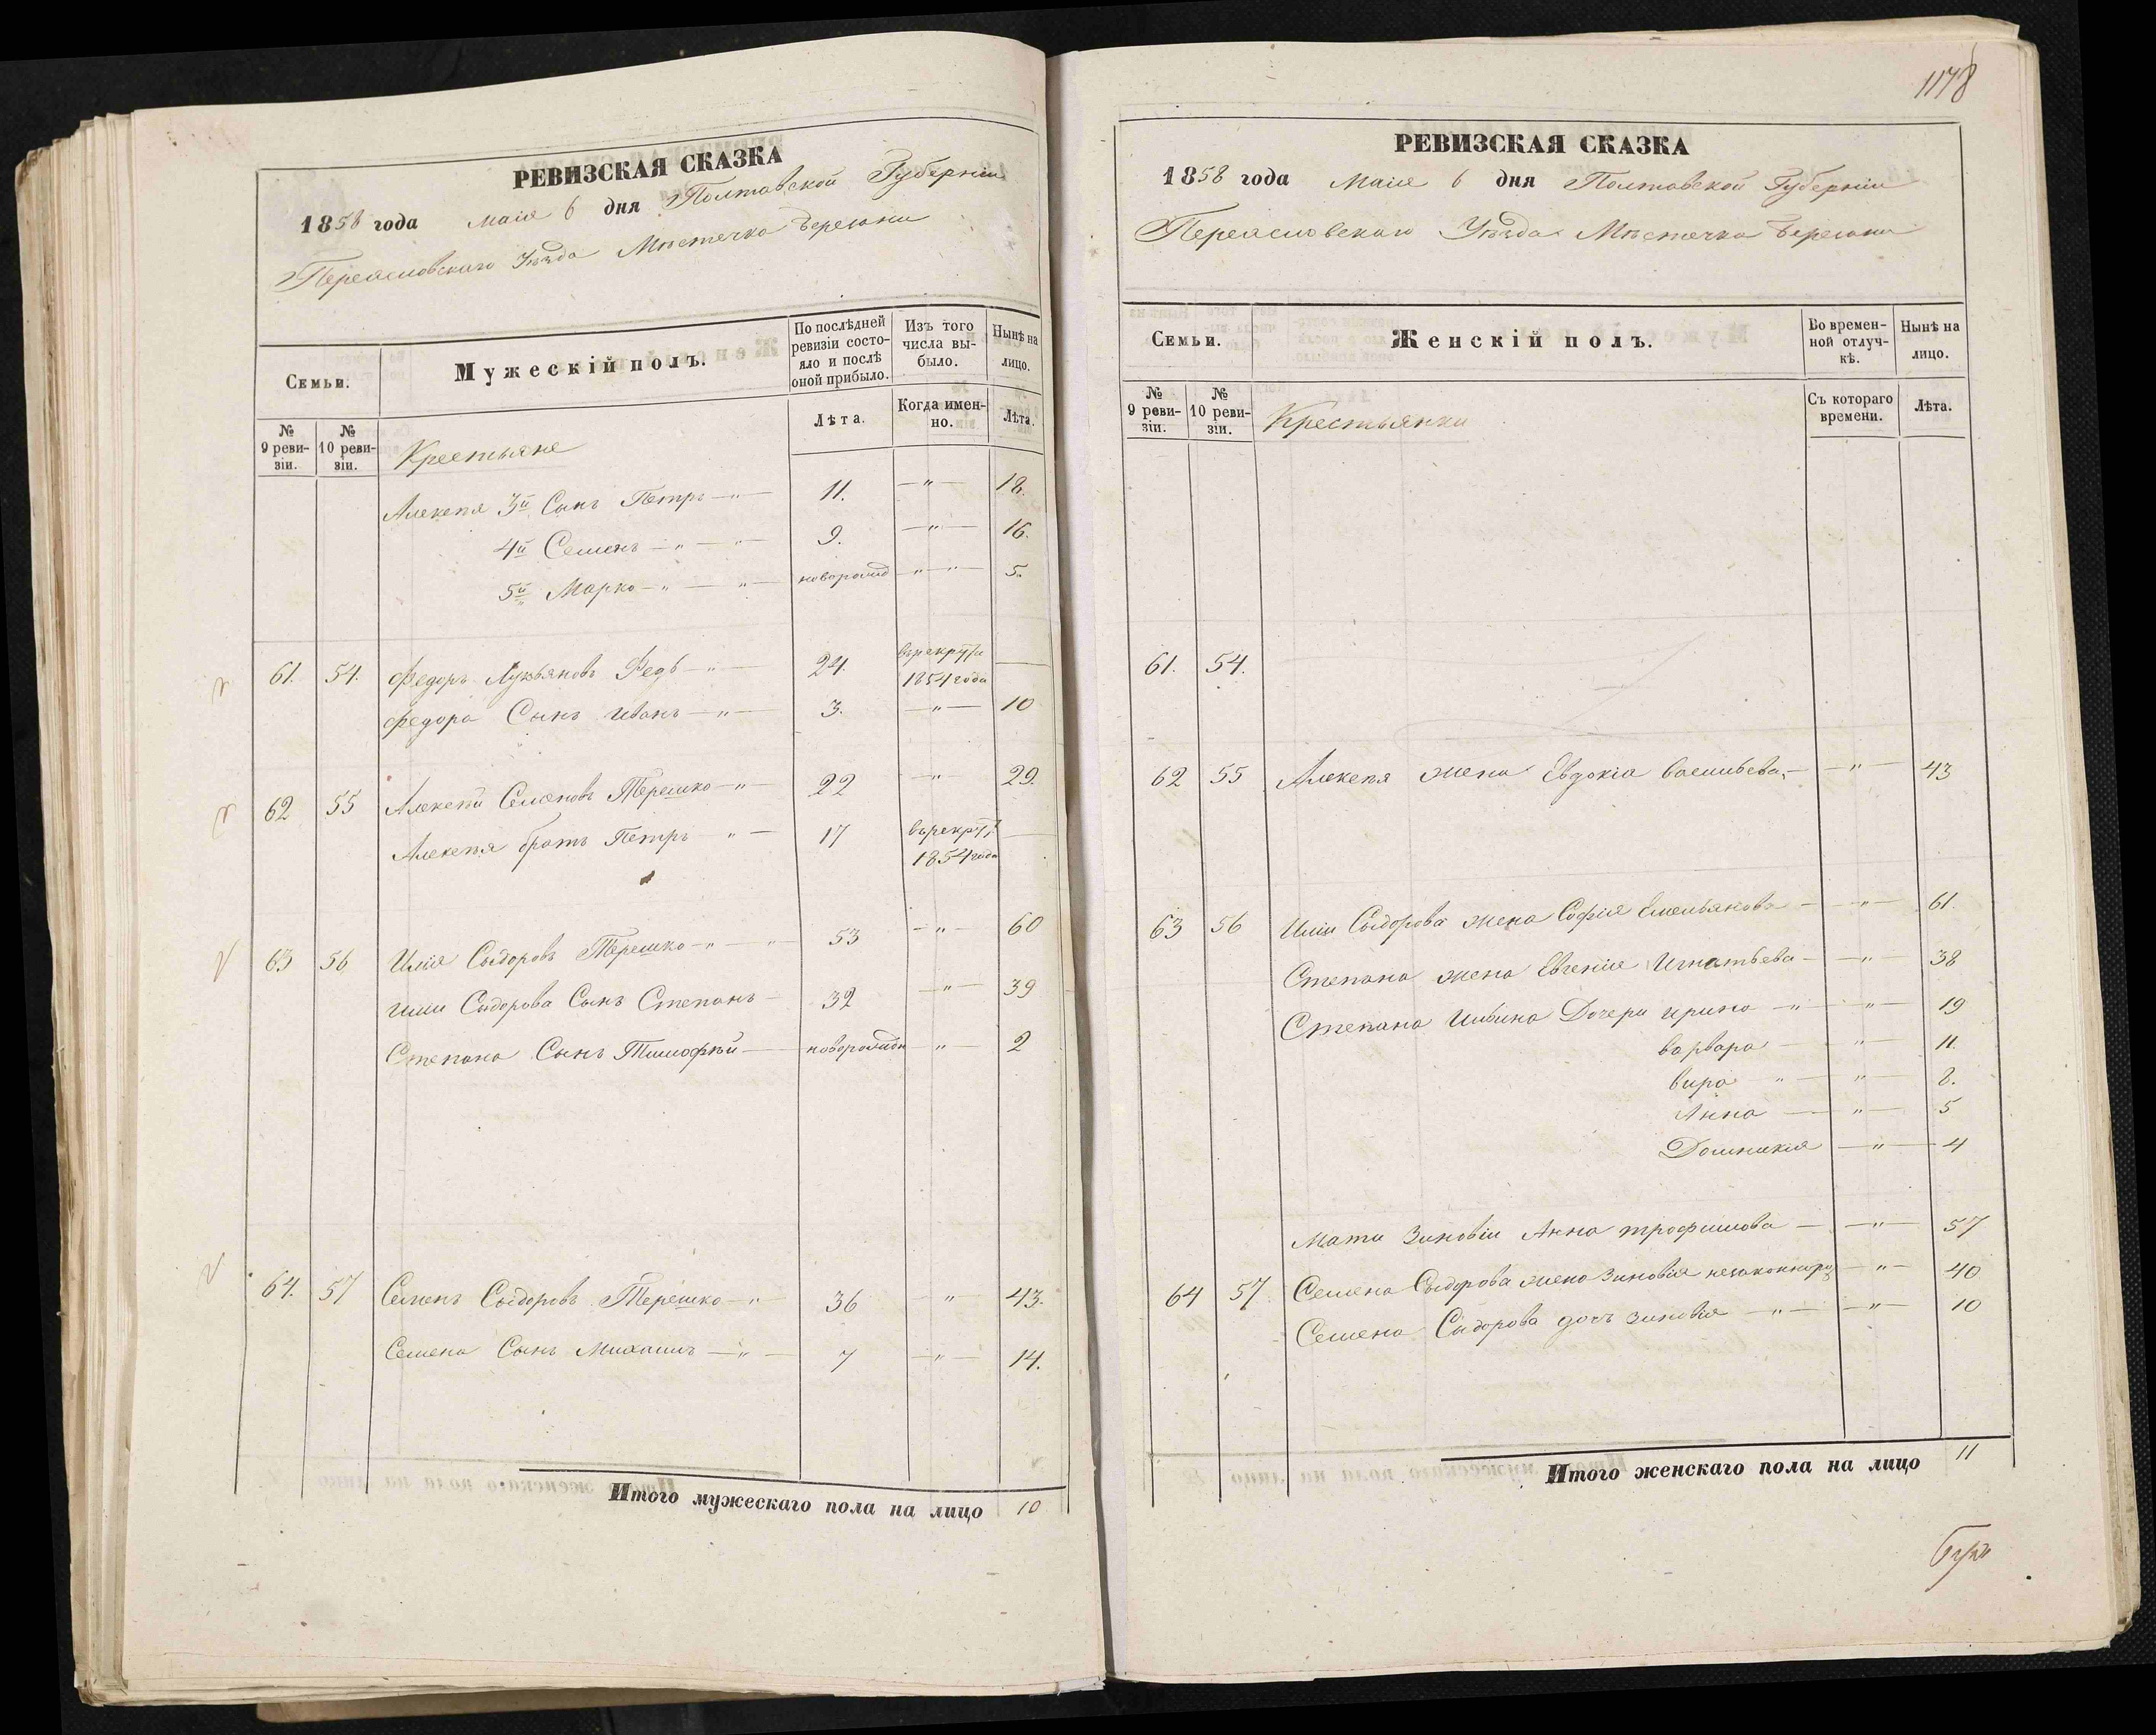 РЕВИЗСКАЯ СКАЗКА
1858 года маія 6 дня Полтавской Губерніи
Переясловскаго Уѣзда Мѣстечка Березани
Семьи.
Мужескій полъ.
По послѣдней ревизіи состояло и послѣ оной прибыло.
Изъ того числа выбыло.
Нынѣ на лицо.
№ 9 ревизіи.
№ 10 ревизіи.
Крестьяне
Лѣта.
Когда именно.
Лѣта.
Алексѣя 3й Сынъ Петръ —"— 11. —"— 18.
4й Семенъ —"— —"— 9. —"— 16.
5й Марко —"— —"— новорожд —"—"— 5.
61. 54. Федоръ Лукьяновъ Редь —"— 24. въ рекруты 1854 года —
Федора Сынъ Иванъ —"— 3. —"— 10
62 55 Алексѣй Семеновъ Терешко —"— 22 —"— 29.
Алексѣя братъ Петръ "— 17 въ рекруты 1854 года —
63 56 Илія Сыдоровъ Терешко —"— —"— 53 —"— 60
Иліи Сыдорова Сынъ Степанъ — 32 —"— 39
Степана Сынъ Тимофѣй — новорожден —"— 2
64. 57 Семенъ Сыдоровъ Терешко —"— 36 —"— 43.
Семена Сынъ Михаилъ —"— 7 —"— 14.
Итого мужескаго пола на лицо 10
1178
РЕВИЗСКАЯ СКАЗКА
1858 года Маія 6 дня Полтавской Губерніи
Переясловскаго Уѣзда Мѣстечка Березани
Семьи.
Женскій полъ.
Во временной отлучкѣ.
Нынѣ на лицо.
№ 9 ревизіи.
№ 10 ревизіи.
Крестьянки
Съ котораго времени.
Лѣта.
61. 54.
62 55 Алексѣя жена Евдокіа Васильева — —"— 43
63 56 Иліи Сыдорова жена Софія Емельянова — —"— 61.
Степана жена Евгенія Игнатьева — —"— 38
Степана Ильина Дочери Ирина —"— —"— 19
Варвара — —"— 11.
Вира —"— —"— 8.
Анна — —"— 5
Домникія —"— 4
Мати Зиновіи Анна Трофимова — —"— 57
64 57 Семена Сыдорова жена Зиновія незаконнорож —"— 40
Семена Сыдорова дочь Зиновія —"— —"— 10
Итого женскаго пола на лицо 11